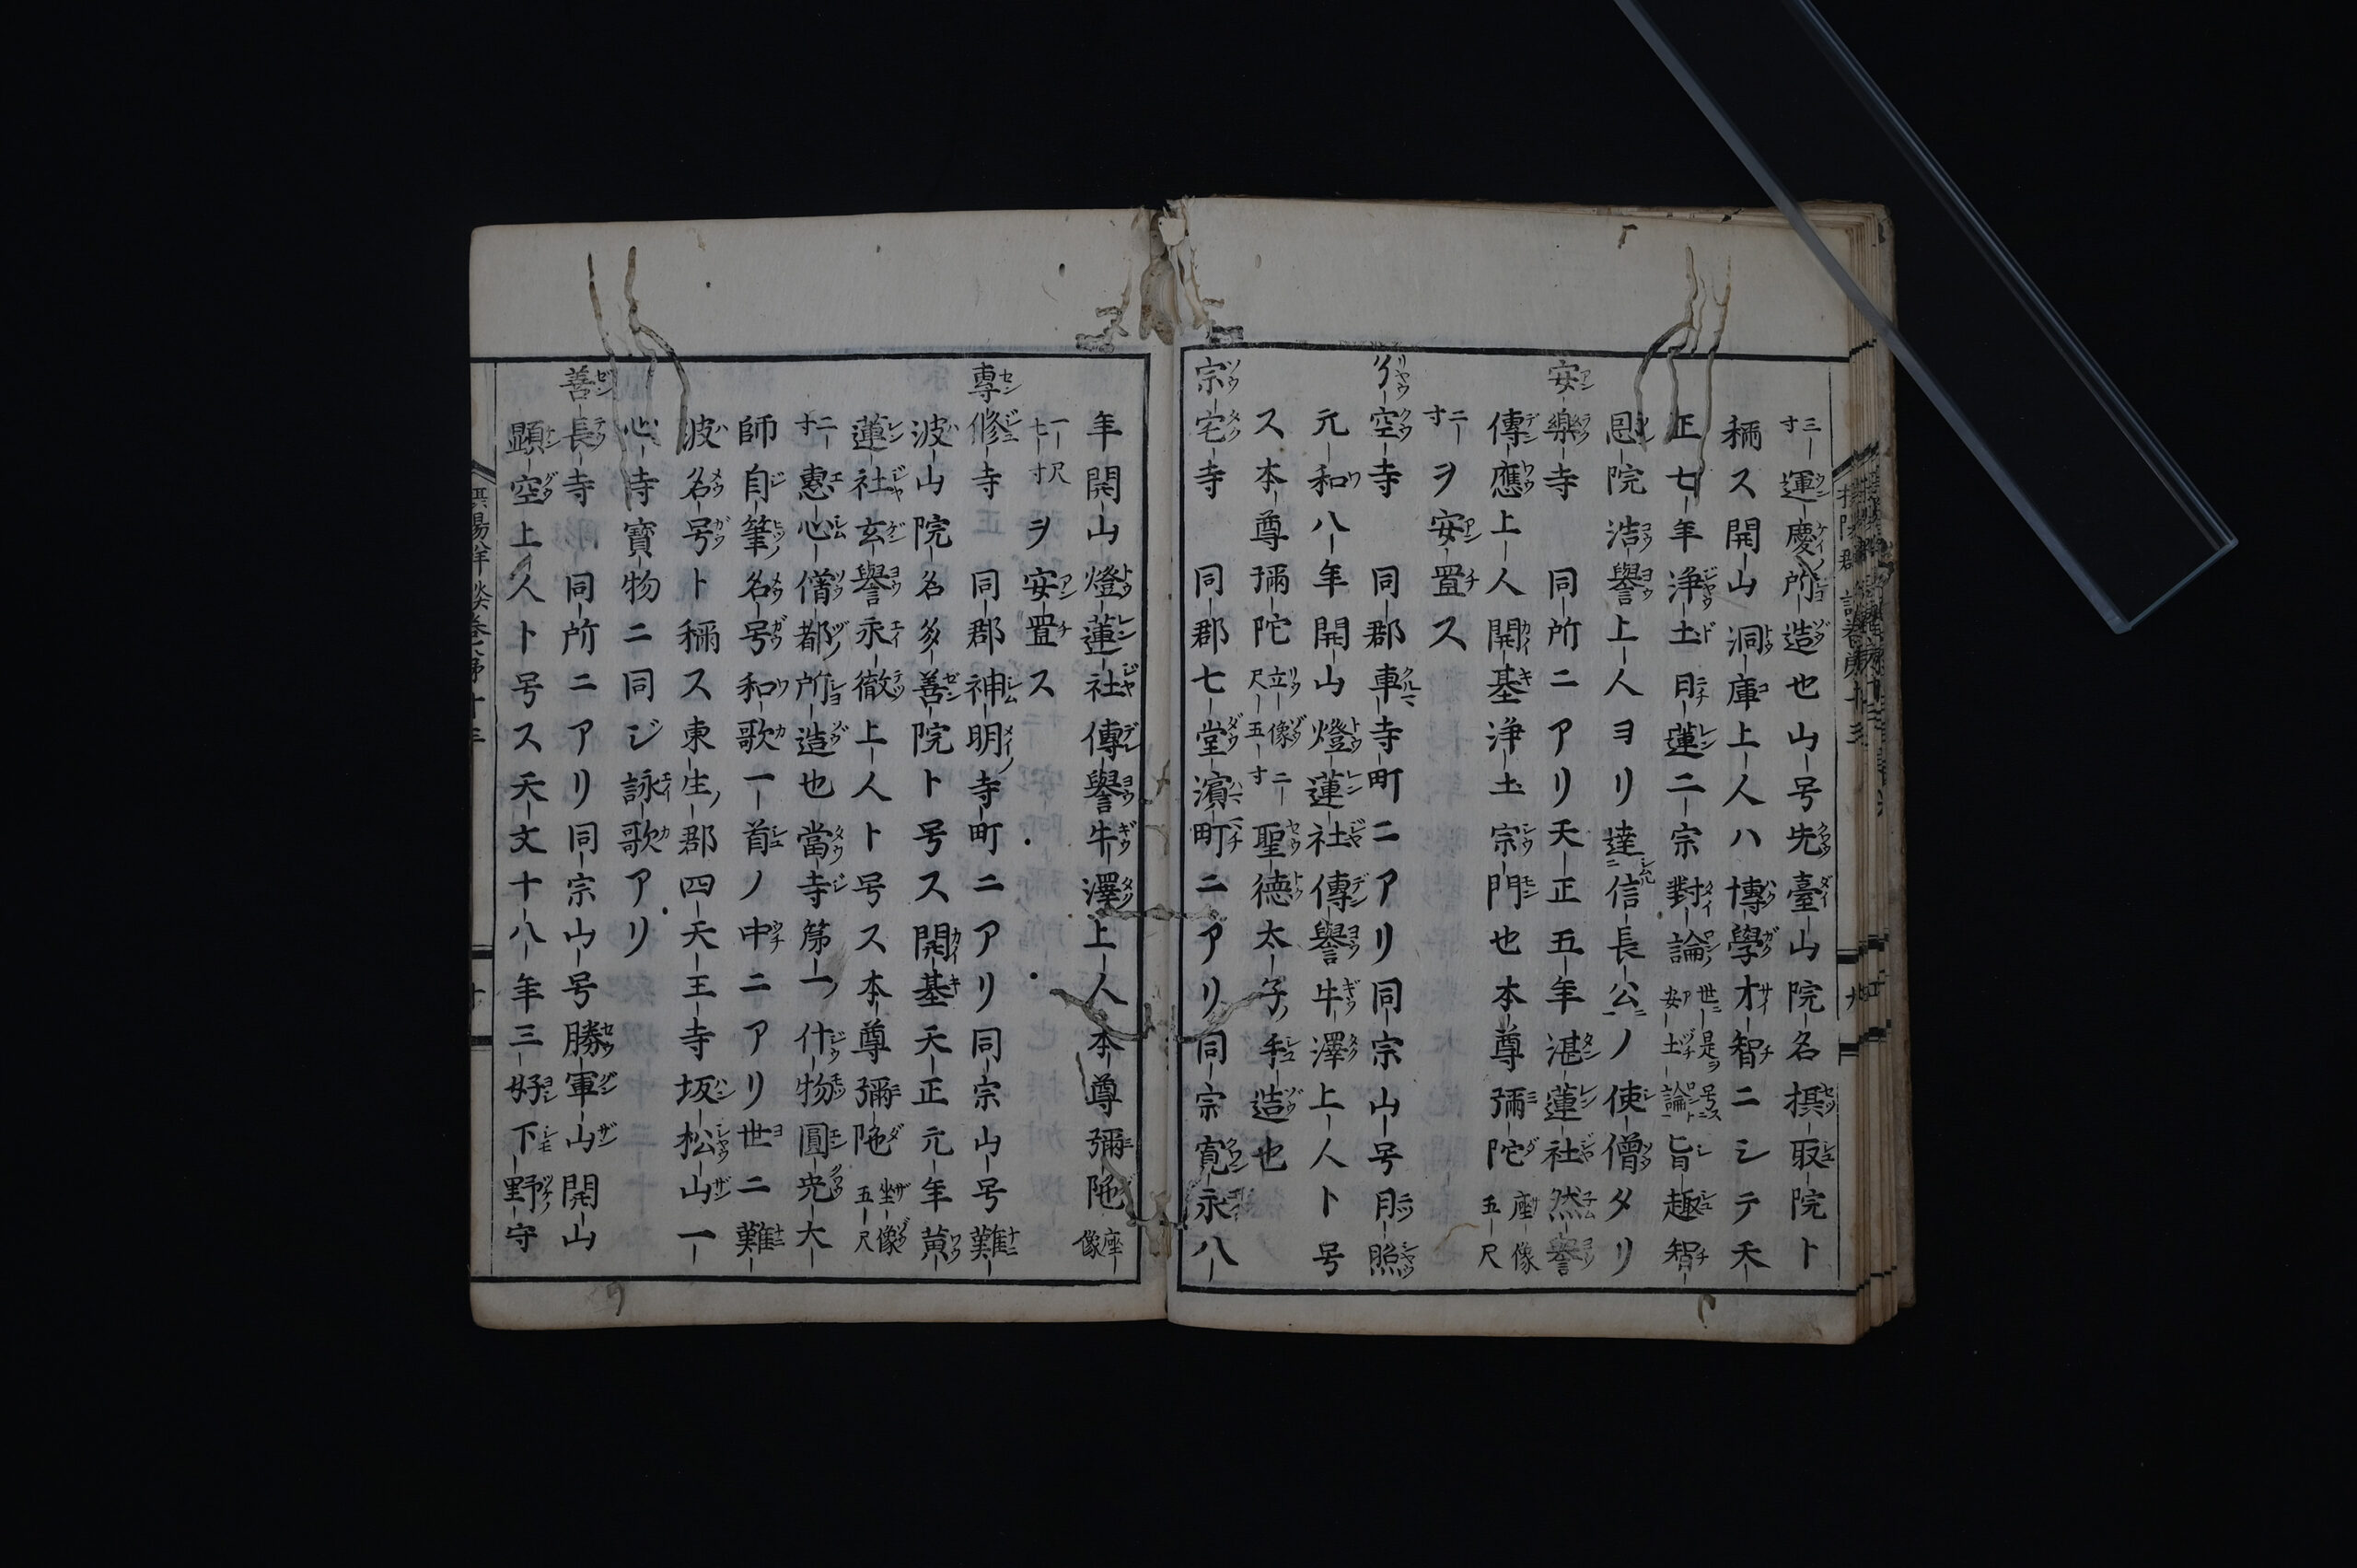 三寸運慶所造也山号光臺山院名摂取院ト
稱ス開山洞庫上人ハ博學才智ニシテ天
正七年浄土日蓮二宗對論世是ヲ安土論ト号ス旨趣智
恩院浩誉上人ヨリ達信長公ノ使僧タリ
安樂寺 同所ニアリ天正五年湛蓮社然誉
傳應上人開基浄土宗門也本尊彌陀座像五尺
二寸ヲ安置ス
了空寺 同郡車寺町ニアリ同宗山号月照
元和八年開山燈蓮社傳誉牛澤上人ト号
ス本尊彌陀立像二尺五寸聖徳太子手造也
宗宅寺 同郡七堂濱町ニアリ同宗寛永八
年開山燈蓮社傳誉牛澤上人本尊彌陁座像
一尺七寸ヲ安置ス
專修寺 同郡神明寺町ニアリ同宗山号難
波山院名多善院ト号ス開基天正元年黄
蓮社玄誉永徹上人ト号ス本尊彌陁坐像五尺
二寸惠心僧都所造也當寺第一什物圓光大
師自筆名号和歌一首ノ中ニアリ世ニ難
波名号ト稱ス東生郡四天王寺坂松山一
心寺寶物ニ同ジ詠歌アリ
善長寺 同所ニアリ同宗山号勝軍山開山
顕空上人ト号ス天文十八年三好下野守